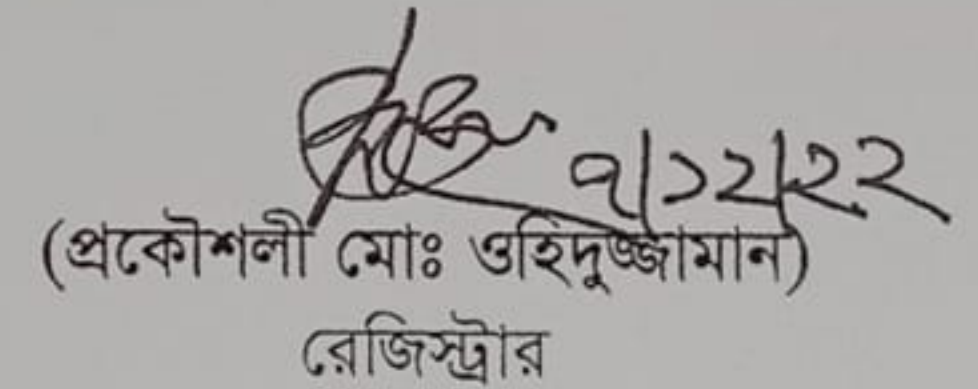 ৭/১২/২২
(প্রকৌশলী মোঃ ওহিদুজ্জামান)
রেজিস্ট্রার